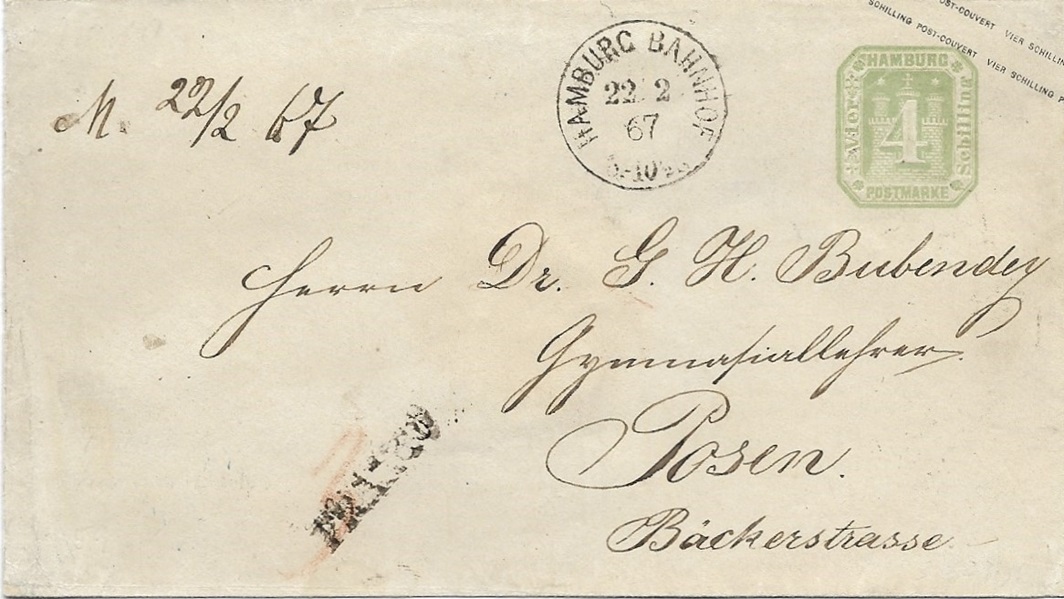 OST-COUVERT VIER SCHILLIN
SCHILLING POST-COUVERT VIER SCHILLING P
M. 22/2 67
HAMBURG BAHNHOF
22 2
67
HAMBURG
Vier
4
Schilling
POSTMARKE
Herrn Dr. G. H. Bubendey
Gymnasiallehrer
Posen.
Bäckerstrasse
FRANCO